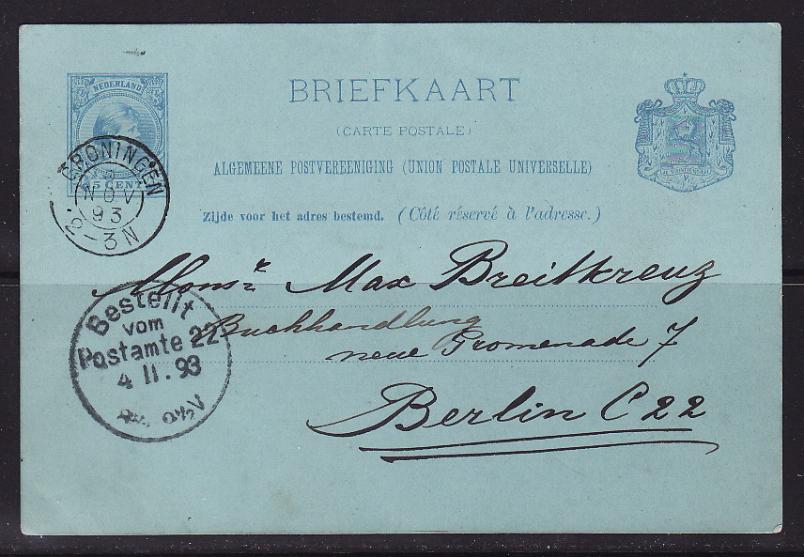 NEDERLAND
5 CENT
BRIEFKAART
(CARTE POSTALE)
ALGEMEENE POSTVEREENIGING (UNION POSTALE UNIVERSELLE)
Zijde voor het adres bestemd. (Côté réservé à l'adresse.)
GRONINGEN
NOV
93
2-3N
Monsr. Max Breitkreuz
Buchhandlung
neue Promenade 7
Berlin C 22
Bestellt
vom
Postamte 22
4 11. 93
V